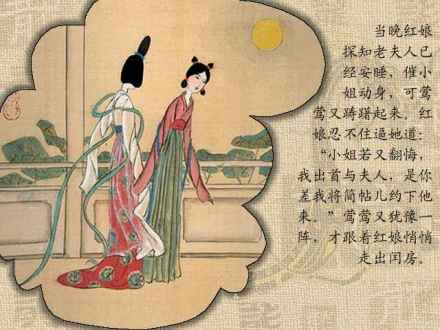 当晚红娘
探知老夫人已
经安睡，催小
姐动身，可莺
莺又踌躇起来，红
娘忍不住逼她道：
“小姐若又翻悔，
我出首与夫人，是你
差我将简帖儿约下他
来。”莺莺又犹豫一
阵，才跟着红娘悄悄
走出闺房。